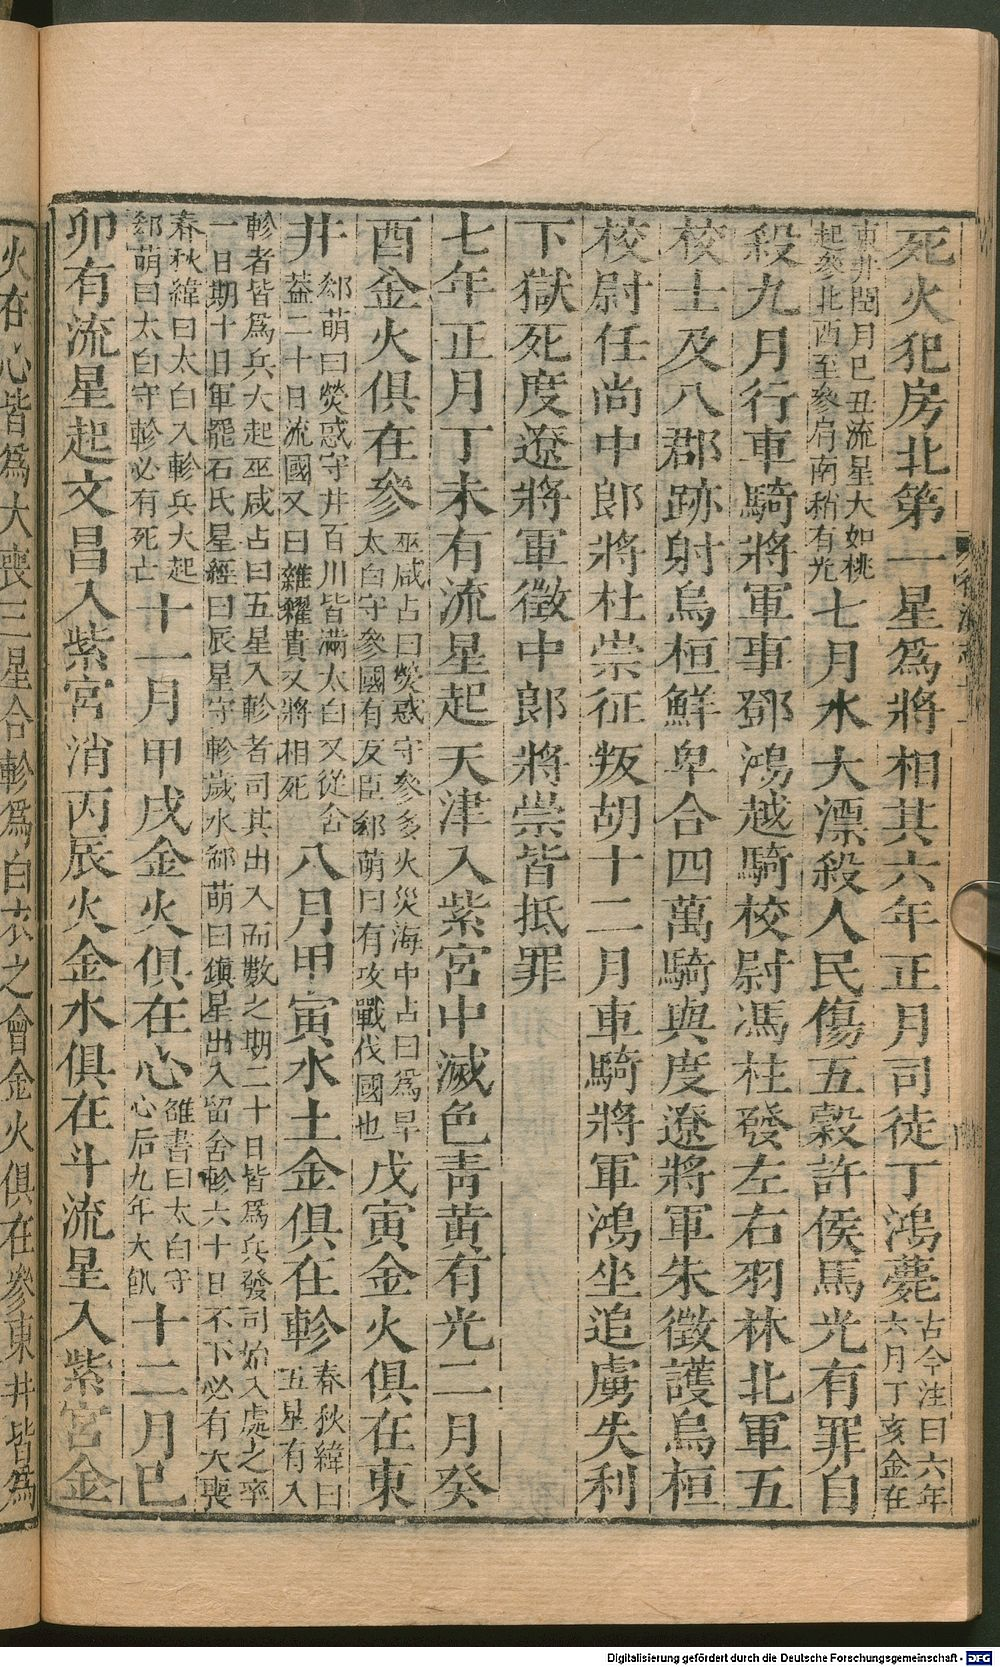 死火犯房北第一星爲將相其六年正月司徒丁鴻薨古今注曰六年六月丁亥金在
東井閏月己丑流星大如桃起參北西至參肩南稍有光七月水大漂殺人民傷五穀許侯馬光有罪自
殺九月行車騎將軍事鄧鴻越騎校尉馮柱發左右羽林北軍五
校士及八郡跡射烏桓鮮卑合四萬騎與度遼將軍朱徵護烏桓
校尉任尚中郎將杜崇征叛胡十二月車騎將軍鴻坐追虜失利
下獄死度遼將軍徵中郎將崇皆抵罪
七年正月丁未有流星起天津入紫宮中滅色靑黃有光二月癸
酉金火俱在參巫咸占曰熒惑守參多火災海中占曰爲旱太白守參國有反臣郄萌曰有攻戰伐國也戊寅金火俱在東
井郄萌曰熒惑守井百川皆滿太白又從舍蓋二十日流國又曰雜糴貴又將相死八月甲寅水土金俱在軫春秋緯曰五星有入
軫者皆爲兵大起巫咸占曰五星入軫者司其出入而數之期二十日皆爲兵發司始入處之率一日期十日軍罷石氏星經曰辰星守軫歲水郄萌曰鎭星出入留舍軫六十日不下必有大喪
春秋緯曰太白入軫兵大起郄萌曰太白守軫必有死亡十一月甲戌金火俱在心雒書曰太白守心后九年大飢十二月己
卯有流星起文昌入紫宮消丙辰火金水俱在斗流星入紫宮金
火在心皆爲大喪三星合軫爲白衣之會金火俱在參東井皆爲